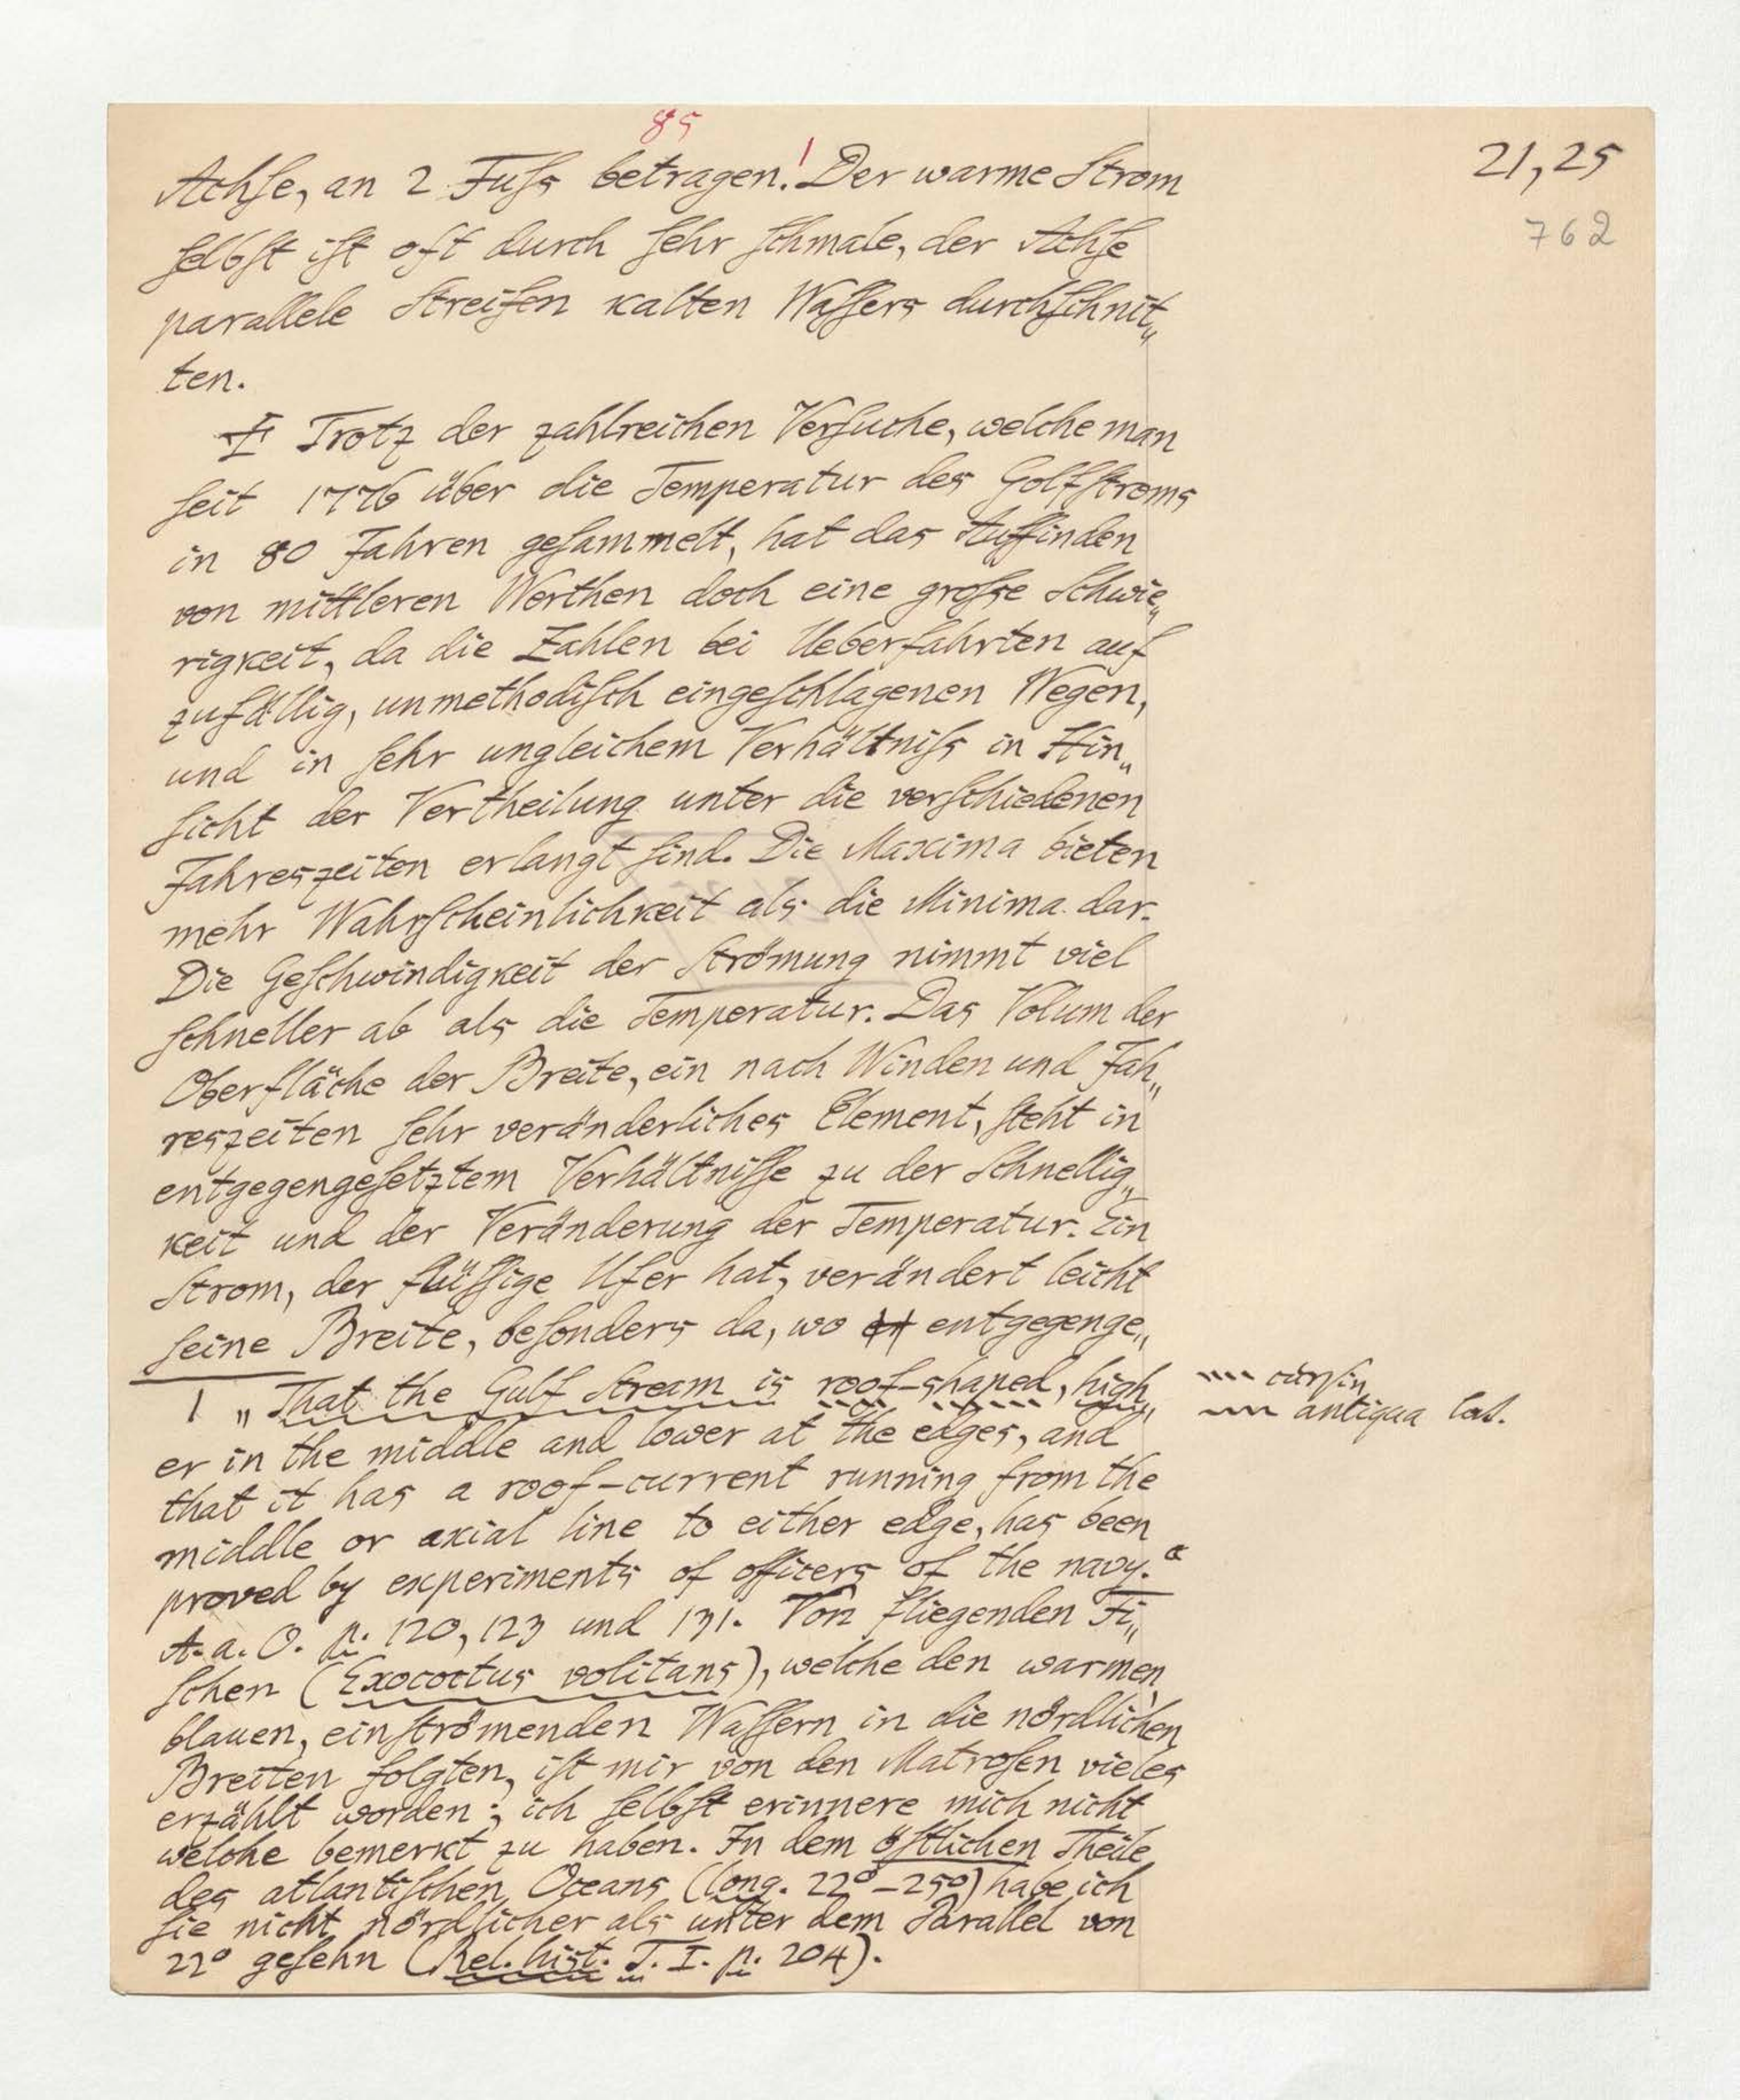 85
21,25
762
Achſe, an 2 Fuſs betragen.¹ Der warme Strom
ſelbſt iſt oft durch ſehr ſchmale, der Achſe
parallele Streifen kalten Waſſers durchſchnit„
ten.
Trotz der zahlreichen Verſuche, welche man
ſeit 1776 über die Temperatur des Golfſtroms
in 80 Jahren geſammelt, hat das Auffinden
von mittleren Werthen doch eine groſse Schwie„
rigkeit, da die Zahlen bei Ueberfahrten auf
zufällig, unmethodiſch eingeſchlagenen Wegen,
und in ſehr ungleichem Verhältniſs in Hin„
ſicht der Vertheilung unter die verſchiedenen
Jahreszeiten erlangt ſind. Die Maxima bieten
mehr Wahrſcheinlichkeit als die Minima dar.
Die Geſchwindigkeit der Strömung nimmt viel
ſchneller ab als die Temperatur. Das Volum der
Oberfläche der Breite, ein nach Winden und Jah„
reszeiten ſehr veränderliches Element, ſteht in
entgegengeſetztem Verhältniſſe zu der Schnellig„
keit und der Veränderung der Temperatur. Ein
Strom, der flüſſige Ufer hat, verändert leicht
ſeine Breite, beſonders da, wo entgegenge„
1 „That the Gulf Stream is roof-shaped, high„
er in the middle and lower at the edges, and
that it has a roof-current running from the
middle or axial line to either edge, has been
proved by experiments of officers of the navy.“
A. a. O. p. 120, 123 und 131. Von fliegenden Fi„
ſchen (Exocoetus volitans), welche den warmen,
blauen, einſtrömenden Waſſern in die nördlichen
Breiten folgten, iſt mir von den Matroſen vieles
erzählt worden; ich ſelbſt erinnere mich nicht
welche bemerkt zu haben. In dem öſtlichen Theile
des atlantiſchen Oceans (long. 22°–25°) habe ich
ſie nicht nördlicher als unter dem Parallel von
22° geſehn (Rel. hist. T. I. p. 204).
antiqua lat.